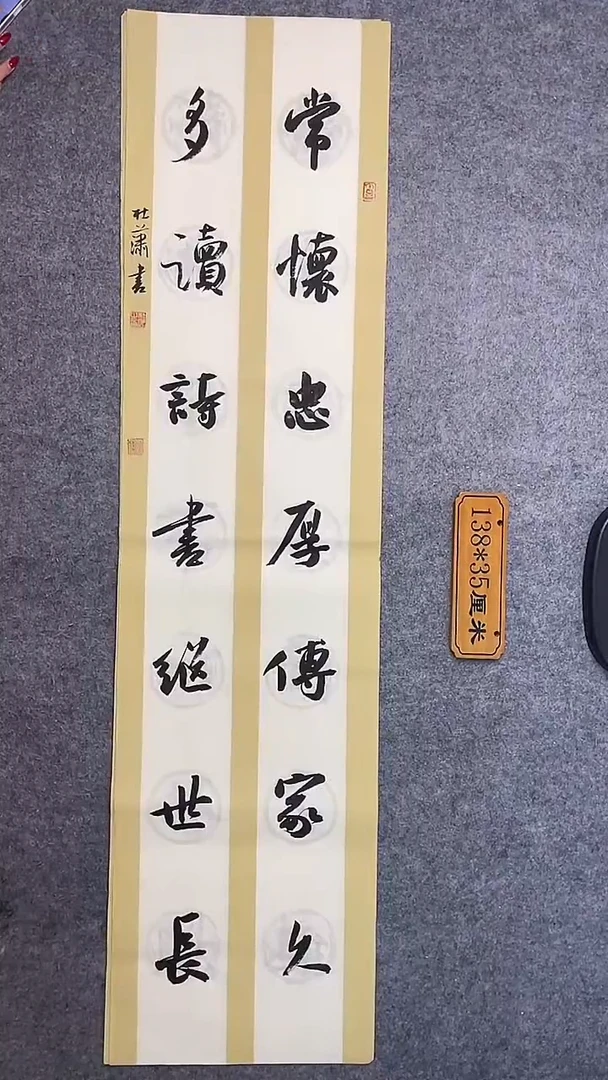 常懷忠厚傳家久
多讀詩書継世長
杜蕭書
138*35厘米